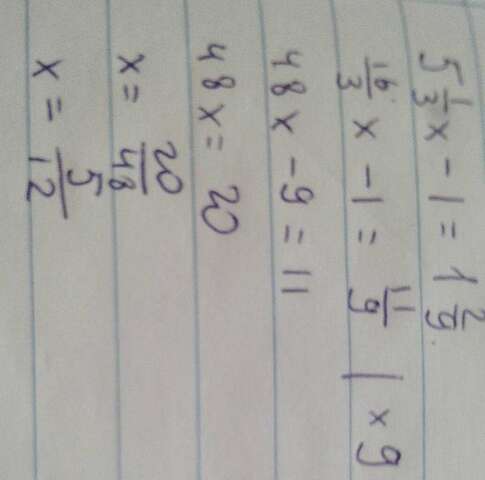 5 1/3 x - 1 = 1 2/9
16/3 x - 1 = 11/9 | x 9
48x - 9 = 11
48x = 20
x = 20/48
x = 5/12